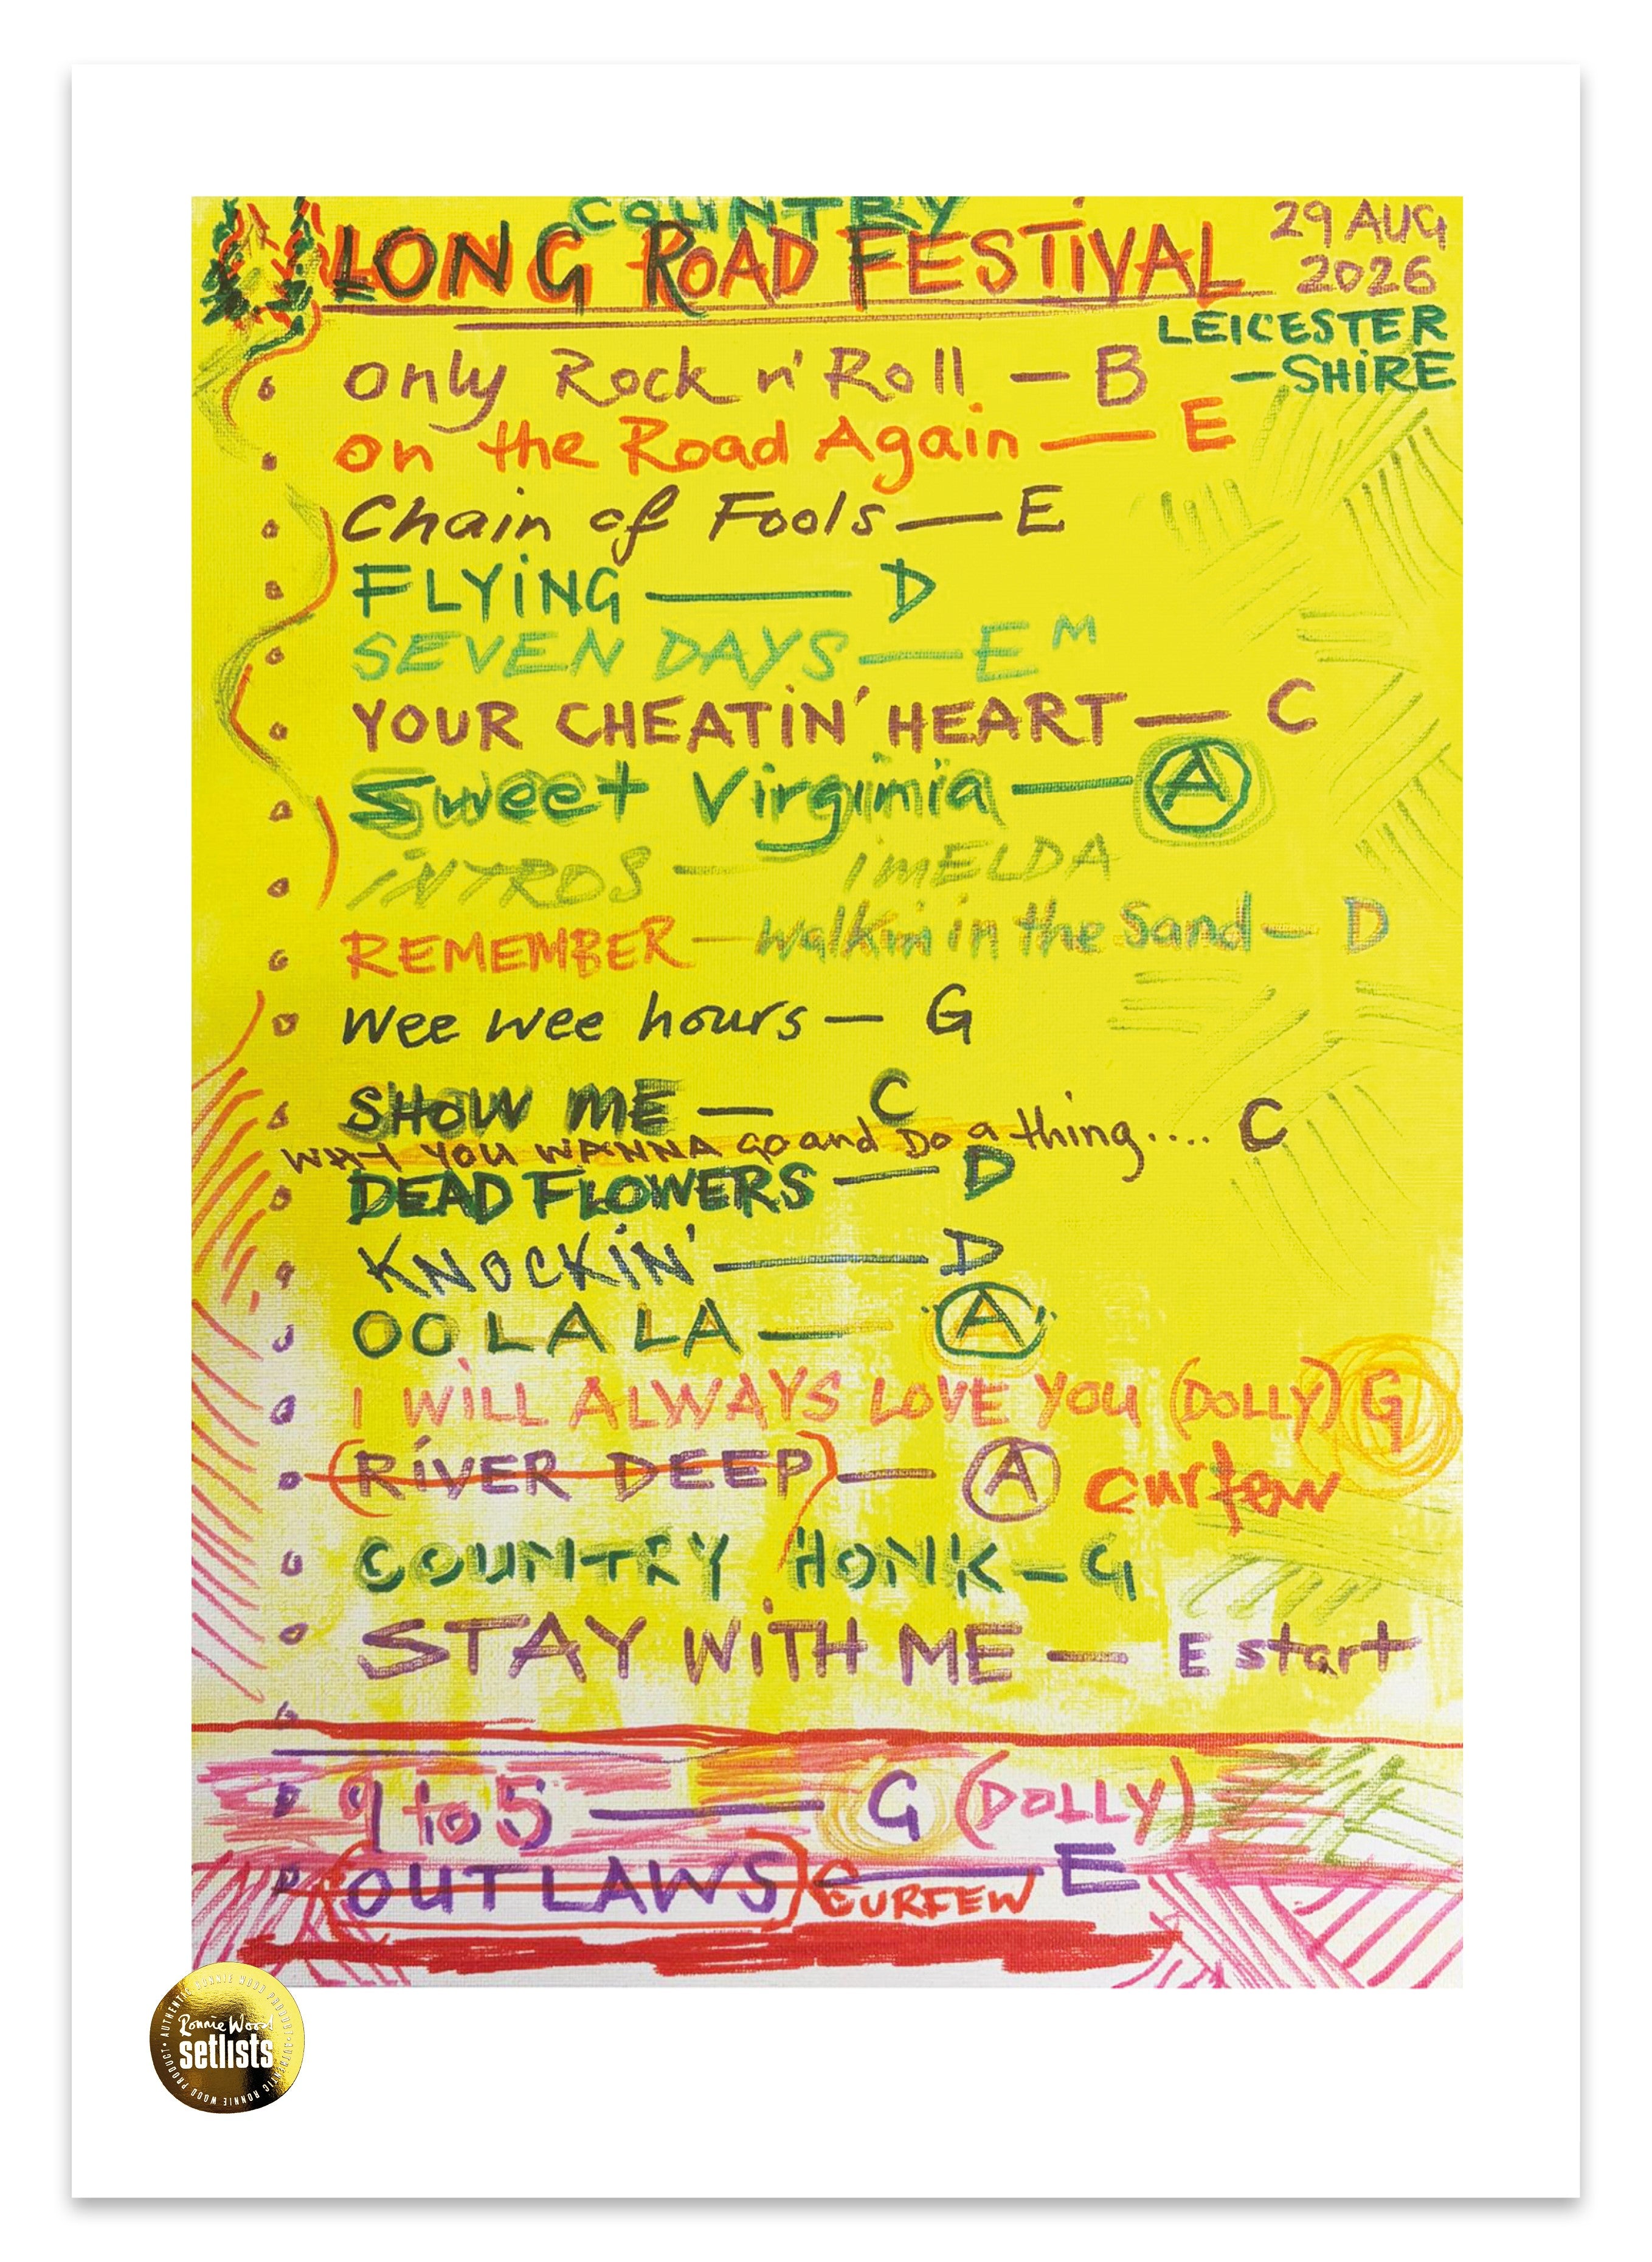 COUNTRY
LONG ROAD FESTIVAL
29 AUG
2026
LEICESTER
-SHIRE
only Rock n' Roll — B
on the Road Again — E
Chain of Fools — E
FLYING — D
SEVEN DAYS — EM
YOUR CHEATIN' HEART — C
Sweet Virginia — A
INTROS — IMELDA
REMEMBER — Walkin in the Sand — D
wee wee hours — G
SHOW ME — C
WHY YOU WANNA go and Do a thing.... C
DEAD FLOWERS — D
KNOCKIN' — D
OO LA LA — A
I WILL ALWAYS LOVE YOU (DOLLY) G
(RIVER DEEP) — A curfew
COUNTRY HONK — G
STAY WITH ME — E start
9 to 5 — G (DOLLY)
(OUTLAWS) — E
CURFEW
AUTHENTIC RONNIE WOOD PRODUCT • AUTHENTIC RONNIE WOOD PRODUCT •
Ronnie Wood
setlists